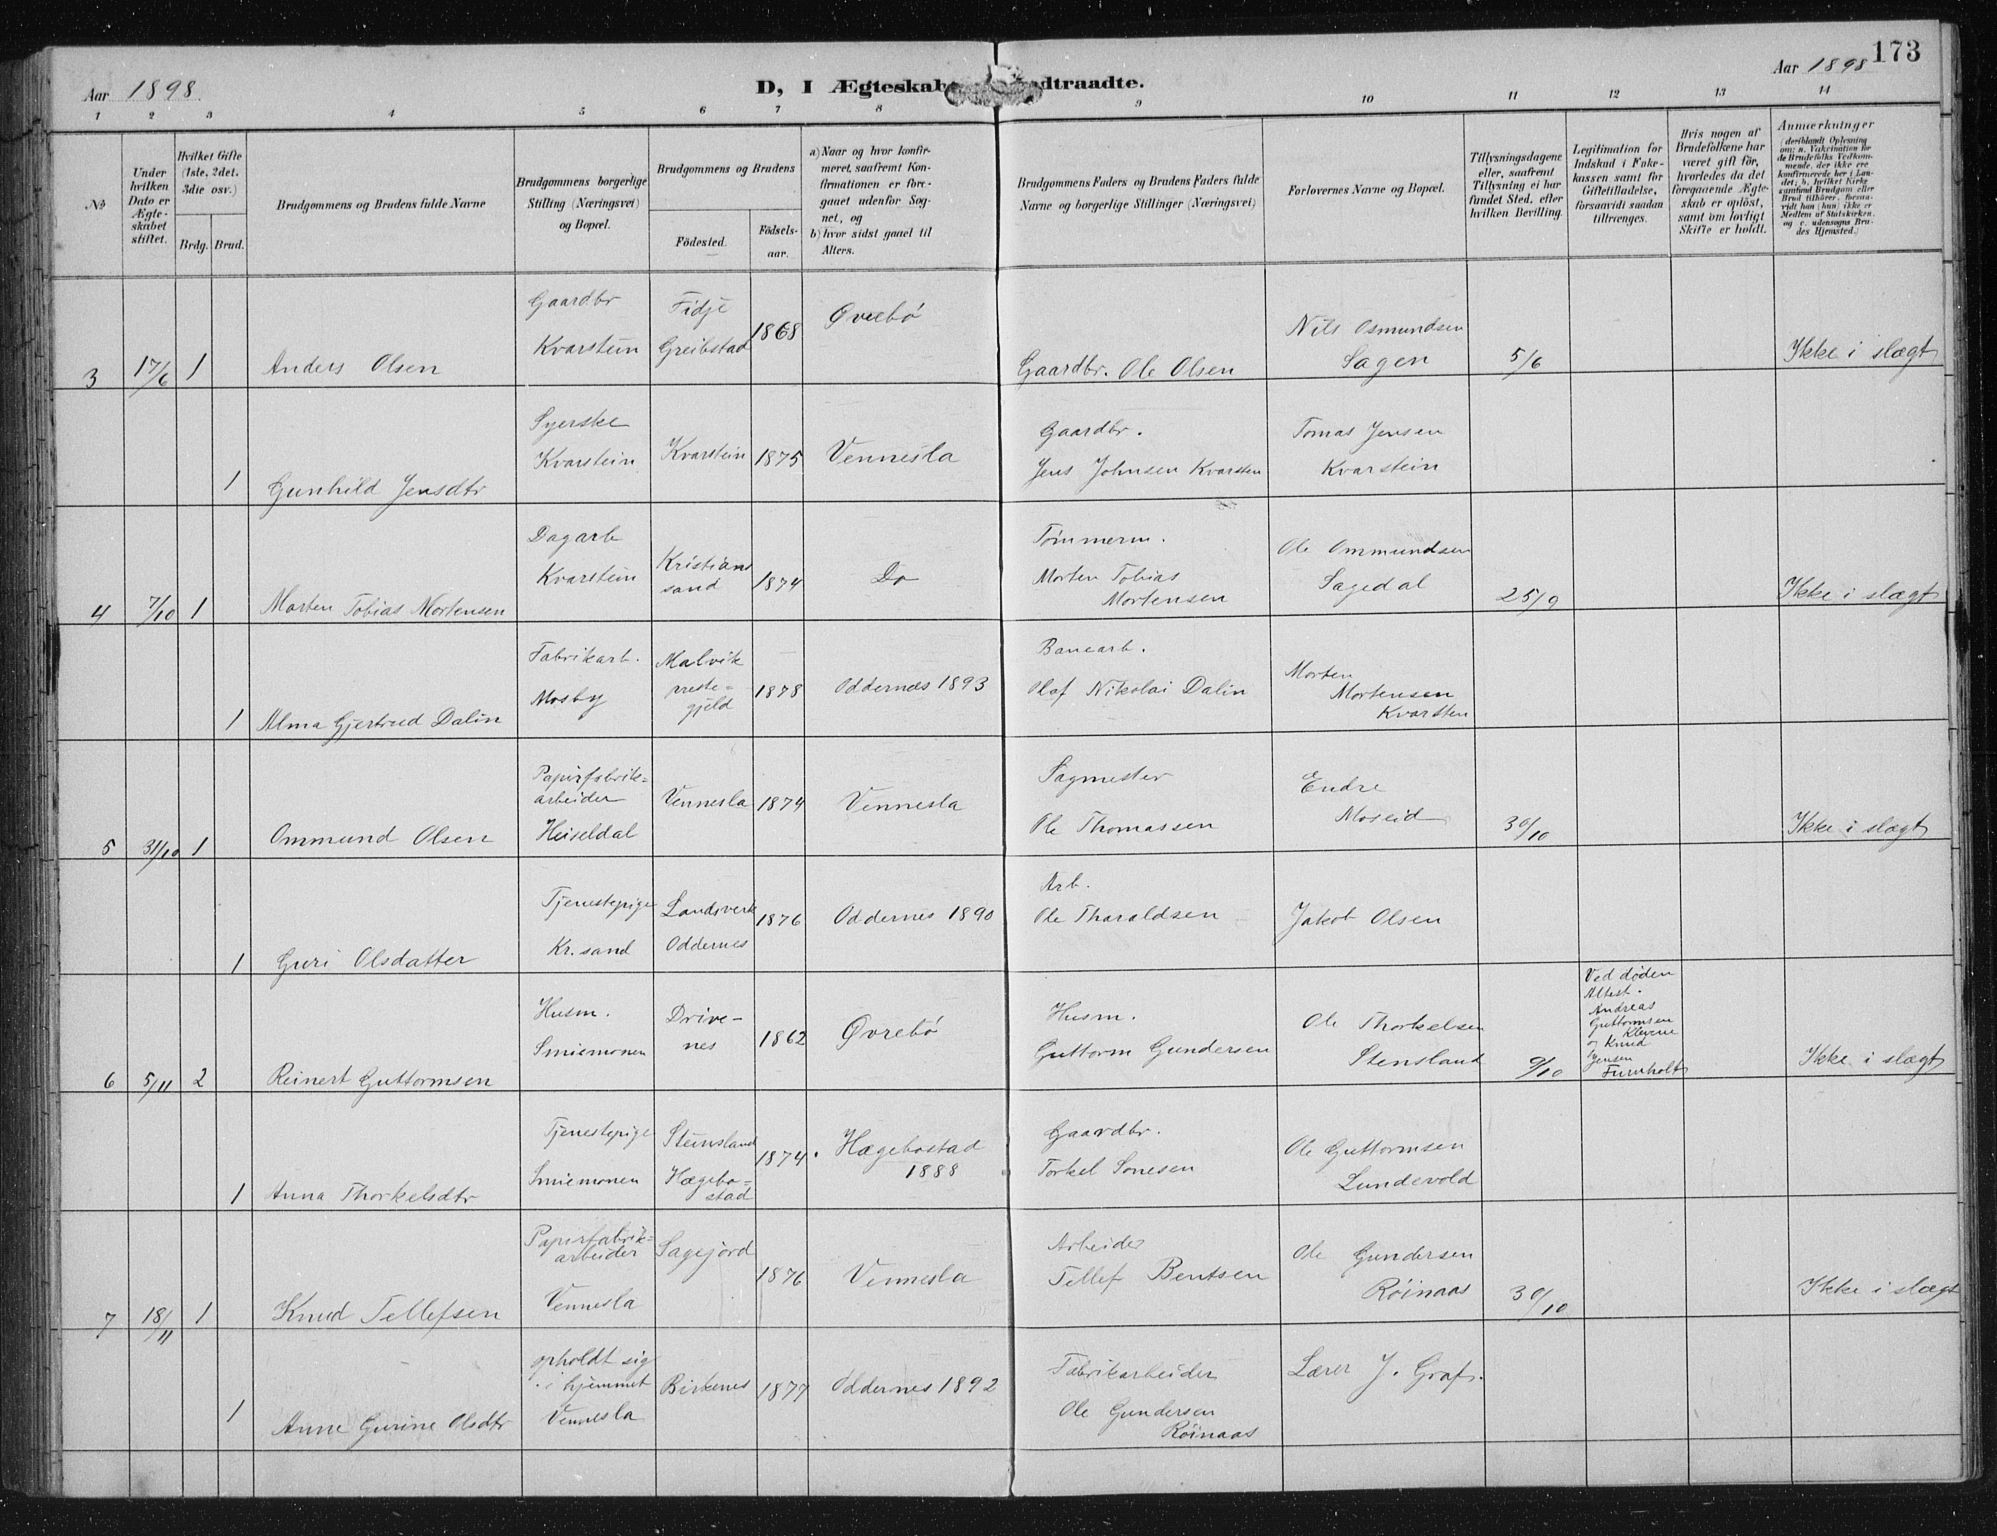 Aar 1898.
D, I Ægteskab
dtraadte.
Aar 1898
173
1 2 3 4 5 6 7 8 9 10 11 12 13 14
№
Under hvilken Dato er Ægteskabet stiftet.
Hvilket Gifte (1ste, 2det, 3die osv.)
Brdg. Brud.
Brudgommens og Brudens fulde Navne
Brudgommens borgerlige Stilling (Næringsvei) og Bopæl.
Brudgommens og Brudens
Födested.
Födselsaar.
a) Naar og hvor konfirmeret, saafremt Konfirmationen er foregaaet udenfor Sognet, og
b) hvor sidst gaaet til Alters.
Brudgommens Faders og Brudens Faders fulde Navne og borgerlige Stillinger (Næringsvei)
Forlovernes Navne og Bopæl.
Tillysningsdagene eller, saafremt Tillysning ei har fundet Sted, efter hvilken Bevilling.
Legitimation for Indskud i Enkekassen samt for Giftetilladelse, forsaavidt saadan tiltrænges.
Hvis nogen af Brudefolkene har været gift för, hvorledes da det foregaaende Ægteskab er oplöst, samt om lovligt Skifte er holdt.
Anmærkninger
(deriblandt Oplysning om: a. Vakcination for de Brudefolks Vedkommende, der ikke ere konfirmerede her i Landet; b. hvilket Kirkesamfund Brudgom eller Brud tilhörer, forsaavidt han (hun) ikke er Medlem af Statskirken, og c. udensogns Brudes Hjemsted.)
3 17/6 1 Anders Olsen
Gaardbr
Kvarstein
Fidje
Greibstad
1868
Øvrebö
Gaardbr. Ole Olsen
Nils Osmundsen
Sagen
5/6
Ikke i slægt
1 Gunhild Jensdtr
Syerske
Kvarstein
Kvarstein
1875
Vennesla
Gaardbr.
Jens Johnsen Kvarsten
Tomas Jensen
Kvarstein
4 7/10 1 Morten Tobias Mortensen
Dagarb
Kvarstein
Kristian
sand
1874
Do
Tömmerm.
Morten Tobias
Mortensen
Ole Ommundsen
Sagedal
25/9
Ikke i slægt
1 Alma Gjertrud Dalin
Fabrikarb.
Mosby
Malvik
preste=
gjeld
1878
Oddernæs 1893
Banearb.
Olaf Nikolai Dalin
Morten
Mortensen
Kvarsten
5 31/10 1 Ommund Olsen
Papirfabrik=
arbeider
Heiseldal
Vennesla
1874
Vennesla
Sagmester
Ole Thomassen
Endre
Moseid
30/10
Ikke i slægt
1 Guri Olsdatter
Tjenestepige
Kr.sand
Landsverk
Oddernes
1876
Oddernes 1890
Arb.
Ole Tharaldsen
Jakob Olsen
6 5/11 2 Reinert Guttormsen
Husm.
Smiemonen
Drive-
nes
1862
Øvrebö
Husm.
Guttorm Gundersen
Ole Thorkelsen
Stensland
9/10
Ved döden
Attest.
Andreas
Guttormsen
Klevene
og Knud
Jensen
Furuholt
Ikke i slægt
1 Anna Thorkelsdtr
Tjenestepige
Smiemonen
Stensland
Hægebo=
stad
1874.
Hægebostad
1888
Gaardbr.
Torkel Sonesen
Ole Guttormsen
Lundevold
7 18/11 1 Knud Tellefsen
Papirfabrik=
arbeider
Vennesla
Sagejord
1876
Vennesla
Arbeider
Tellef Bentsen
Ole Gundersen
Röinaas
30/10
Ikke i slægt
1 Anne Gurine Olsdtr
opholdt sig
i hjemmet
Vennesla
Birkenes
1877
Oddernes 1892
Fabrikarbeider
Ole Gundersen
Röinaas
Lærer J. Graf.